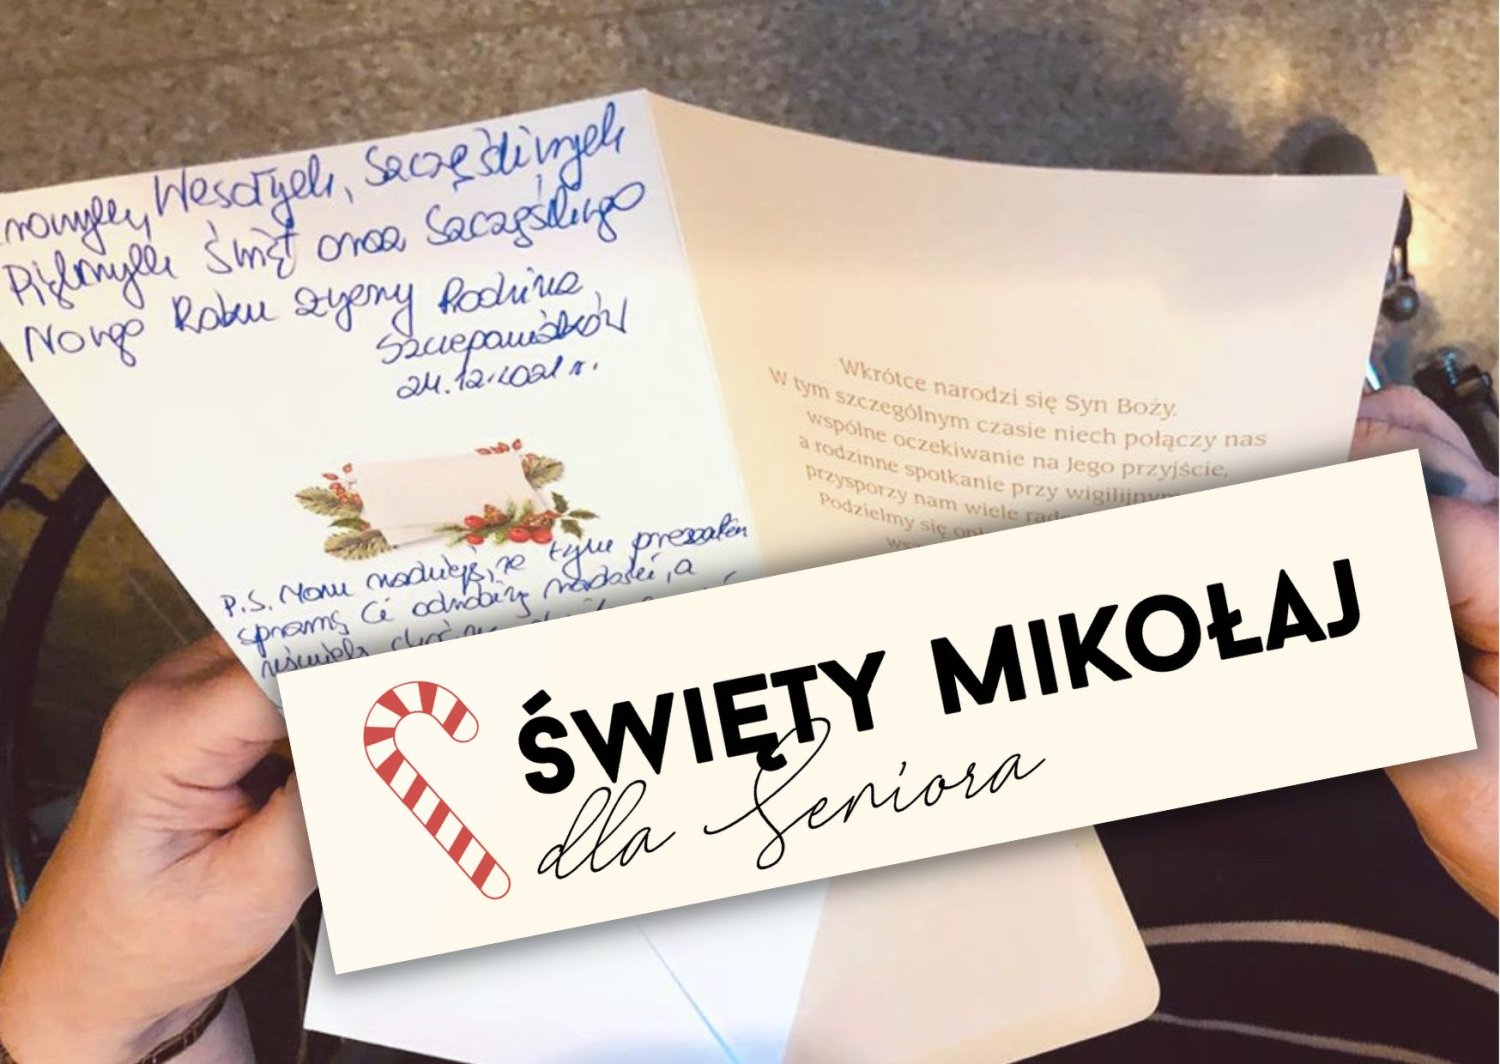 Wesołych, Szczęśliwych
Pięknych Świąt oraz Szczęśliwego
Nowego Roku życzy Rodzina
Szczepaniaków
24.12.2021 r.
P.S. Mam nadzieję, że tymi prezentem
sprawię Ci odrobinę radości, a
Wkrótce narodzi się Syn Boży.
W tym szczególnym czasie niech połączy nas
wspólne oczekiwanie na Jego przyjście,
a rodzinne spotkanie przy
przysporzy nam wiele
Podzielmy się
ŚWIĘTY MIKOŁAJ
dla Seniora